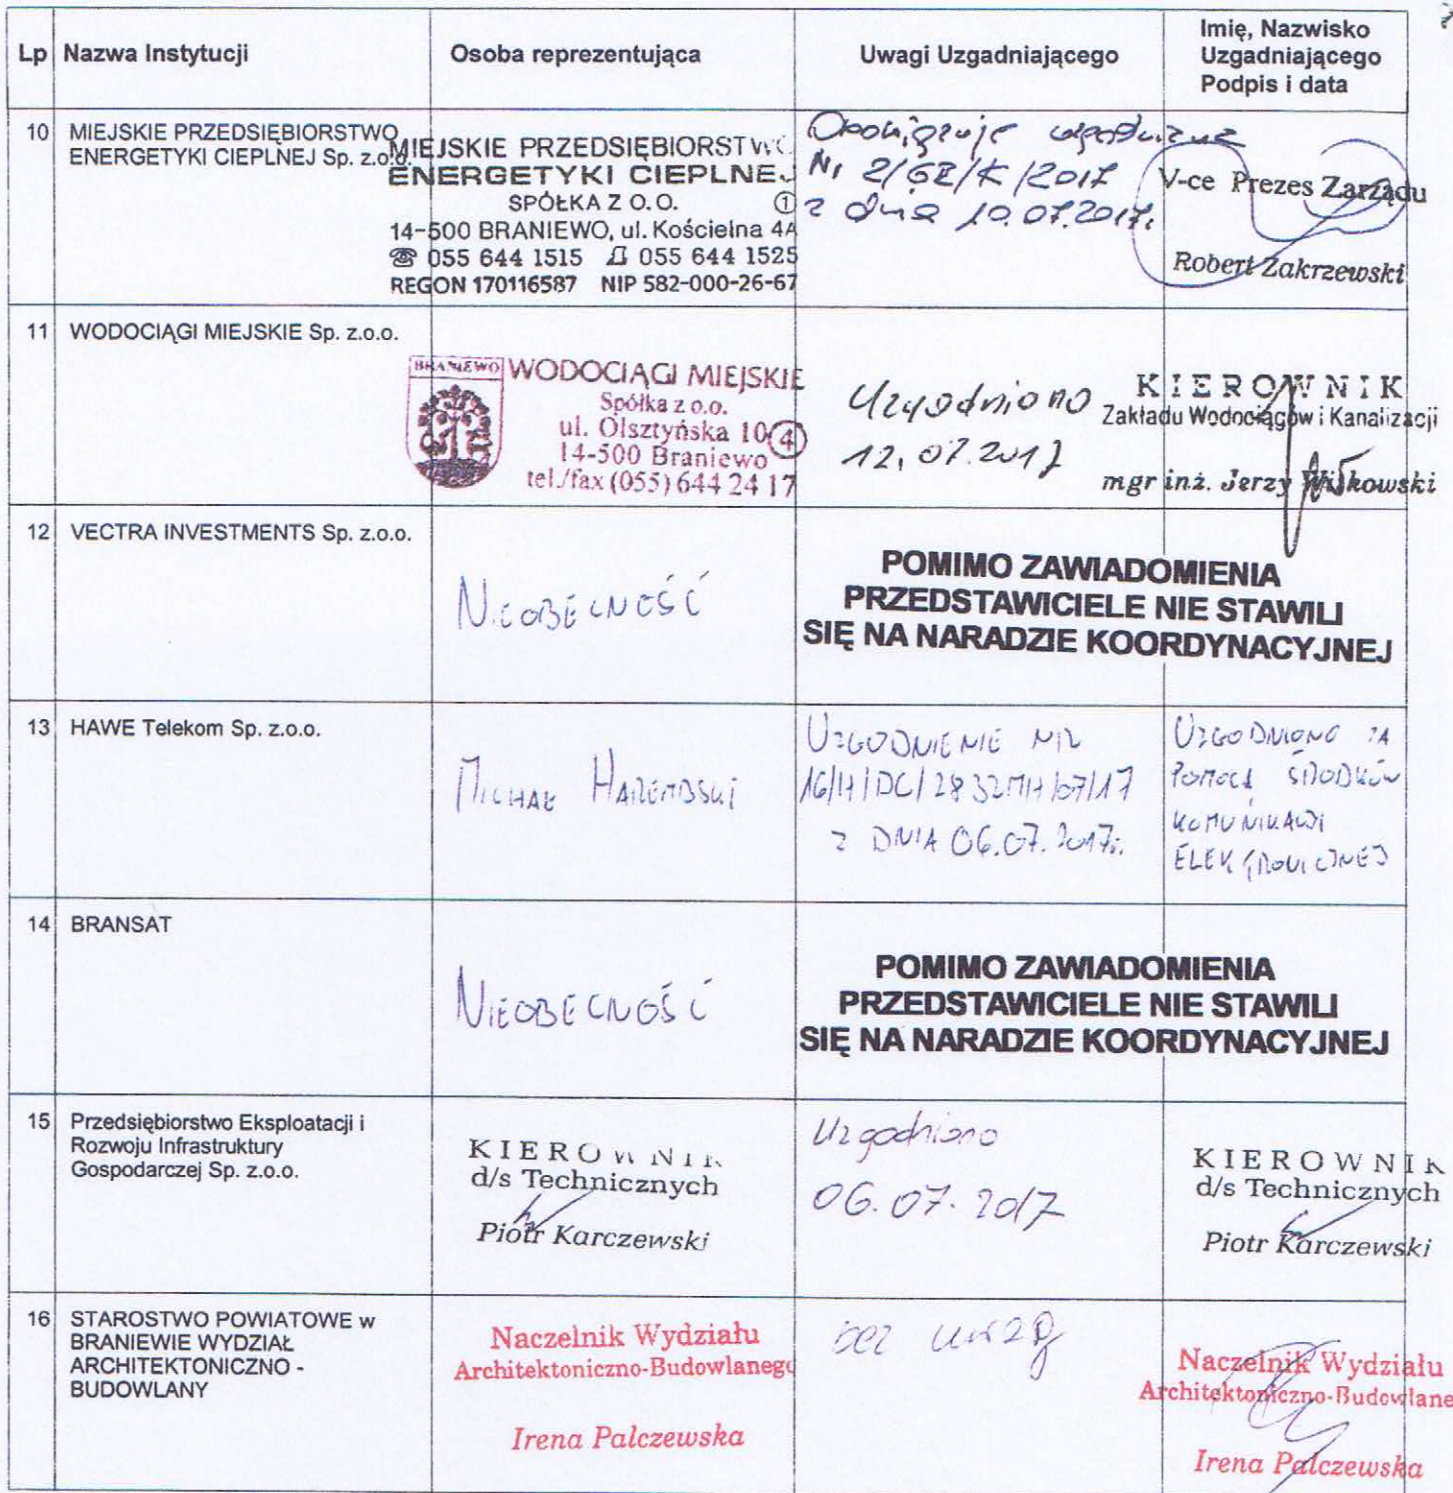 Lp Nazwa Instytucji Osoba reprezentująca Uwagi Uzgadniającego Imię, Nazwisko
Uzgadniającego
Podpis i data
10 MIEJSKIE PRZEDSIĘBIORSTWO
ENERGETYKI CIEPLNEJ Sp. z.o.o.
MIEJSKIE PRZEDSIĘBIORSTWO
ENERGETYKI CIEPLNEJ
SPÓŁKA Z O.O. 1
14-500 BRANIEWO, ul. Kościelna 4A
☎ 055 644 1515 055 644 1525
REGON 170116587 NIP 582-000-26-67
Obowiązuje uzgodnienie
Nr 2/GE/K/2017
z dnia 10.07.2017.
V-ce Prezes Zarządu
Robert Zakrzewski
11 WODOCIĄGI MIEJSKIE Sp. z.o.o.
BRANIEWO
WODOCIĄGI MIEJSKIE
Spółka z o.o.
ul. Olsztyńska 10 4
14-500 Braniewo
tel./fax (055) 644 24 17
Uzgodniono
12.07.2017
KIEROWNIK
Zakładu Wodociągów i Kanalizacji
mgr inż. Jerzy
12 VECTRA INVESTMENTS Sp. z.o.o.
NIEOBECNOŚĆ
POMIMO ZAWIADOMIENIA
PRZEDSTAWICIELE NIE STAWILI
SIĘ NA NARADZIE KOORDYNACYJNEJ
13 HAWE Telekom Sp. z.o.o.
MICHAŁ HAREMBSKI
UZGODNIENIE NR
16/H/DC/2832MH/07/17
Z DNIA 06.07.2017r.
UZGODNIONO ZA
POMOCĄ ŚRODKÓW
KOMUNIKACJI
ELEKTRONICZNEJ
14 BRANSAT
NIEOBECNOŚĆ
POMIMO ZAWIADOMIENIA
PRZEDSTAWICIELE NIE STAWILI
SIĘ NA NARADZIE KOORDYNACYJNEJ
15 Przedsiębiorstwo Eksploatacji i
Rozwoju Infrastruktury
Gospodarczej Sp. z.o.o.
KIEROWNIK
d/s Technicznych
Piotr Karczewski
Uzgodniono
06.07.2017
KIEROWNIK
d/s Technicznych
Piotr Karczewski
16 STAROSTWO POWIATOWE w
BRANIEWIE WYDZIAŁ
ARCHITEKTONICZNO -
BUDOWLANY
Naczelnik Wydziału
Architektoniczno-Budowlanego
Irena Palczewska
bez uwag
Naczelnik Wydziału
Architektoniczno-Budowlane
Irena Palczewska